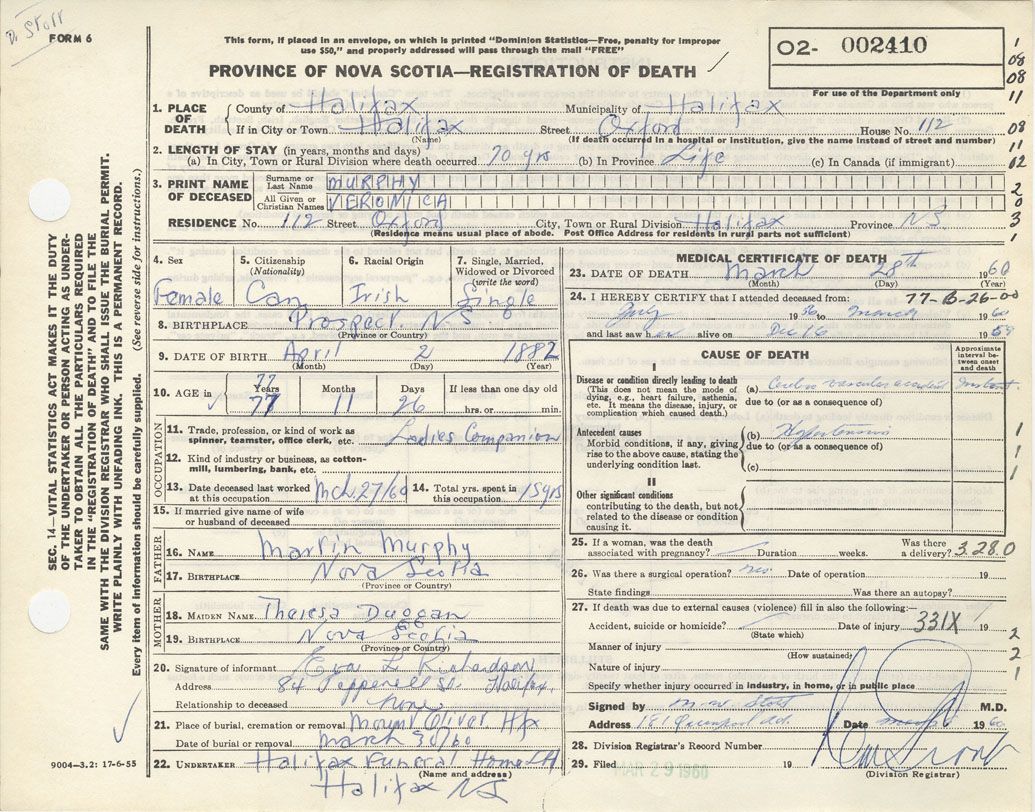 D. Stott
FORM 6
This form, if placed in an envelope, on which is printed "Dominion Statistics—Free, penalty for improper
use $50," and properly addressed will pass through the mail "FREE"
PROVINCE OF NOVA SCOTIA—REGISTRATION OF DEATH
O2- 002410
For use of the Department only
1. PLACE OF DEATH { County of Halifax Municipality of Halifax
If in City or Town Halifax Street Oxford House No. 112
(Name) (If death occurred in a hospital or institution, give the name instead of street and number)
2. LENGTH OF STAY (in years, months and days)
(a) In City, Town or Rural Division where death occurred 70 yrs (b) In Province Life (c) In Canada (if immigrant)
3. PRINT NAME OF DECEASED
Surname or Last Name MURPHY
All Given or Christian Names VERONICA
RESIDENCE No. 112 Street Oxford City, Town or Rural Division Halifax Province N.S.
(Residence means usual place of abode. Post Office Address for residents in rural parts not sufficient)
4. Sex Female
5. Citizenship (Nationality) Can
6. Racial Origin Irish
7. Single, Married, Widowed or Divorced (write the word) Single
8. BIRTHPLACE Prospect. N.S
(Province or Country)
9. DATE OF BIRTH April 2 1882
(Month) (Day) (Year)
10. AGE in 77 Years 77 Months 11 Days 26 If less than one day old hrs. or min.
OCCUPATION
11. Trade, profession, or kind of work as
spinner, teamster, office clerk, etc. Ladies Companion
12. Kind of industry or business, as cotton-
mill, lumbering, bank, etc.
13. Date deceased last worked at this occupation Mch. 27/60 14. Total yrs. spent in this occupation 15 yrs
15. If married give name of wife
or husband of deceased
FATHER
16. NAME Martin Murphy
17. BIRTHPLACE Nova Scotia
(Province or Country)
MOTHER
18. MAIDEN NAME Theresa Duggan
19. BIRTHPLACE Nova Scotia
(Province or Country)
20. Signature of informant Eva L Richardson
Address 84 Pepperell St. Halifax.
Relationship to deceased none
21. Place of burial, cremation or removal Mount Olivet Hfx
Date of burial or removal March 30/60
22. UNDERTAKER Halifax Funeral Home Ltd
(Name and address)
Halifax NS
9004—3.2: 17-6-55
MEDICAL CERTIFICATE OF DEATH
23. DATE OF DEATH March 28th 1960
(Month) (Day) (Year)
24. I HEREBY CERTIFY that I attended deceased from: 77-B-26-00
July 1956 to March 1960
and last saw her alive on Dec 16 1959
CAUSE OF DEATH
Approximate interval between onset and death
I
Disease or condition directly leading to death
(This does not mean the mode of
dying, e.g., heart failure, asthenia,
etc. It means the disease, injury, or
complication which caused death.)
(a) vascular accident Instant
due to (or as a consequence of)
Antecedent causes
Morbid conditions, if any, giving
rise to the above cause, stating the
underlying condition last.
(b) Hypertension
due to (or as a consequence of)
(c)
II
Other significant conditions
contributing to the death, but not
related to the disease or condition
causing it.
25. If a woman, was the death
associated with pregnancy? Duration weeks. Was there a delivery? 3.28.0
26. Was there a surgical operation? no Date of operation 19
State findings Was there an autopsy?
27. If death was due to external causes (violence) fill in also the following:—
Accident, suicide or homicide? Date of injury 331X 19
(State which)
Manner of injury
(How sustained)
Nature of injury
Specify whether injury occurred in industry, in home, or in public place
Signed by M.W. Stott M.D.
Address 181 Date 1960
28. Division Registrar's Record Number
29. Filed MAR 29 1960 19
(Division Registrar)
1
08
08
11
08
11
02
2
0
3
1
1
1
1
2
2
1
SEC. 14—VITAL STATISTICS ACT MAKES IT THE DUTY
OF THE UNDERTAKER OR PERSON ACTING AS UNDER-
TAKER TO OBTAIN ALL THE PARTICULARS REQUIRED
IN THE "REGISTRATION OF DEATH" AND TO FILE THE
SAME WITH THE DIVISION REGISTRAR WHO SHALL ISSUE THE BURIAL PERMIT.
WRITE PLAINLY WITH UNFADING INK. THIS IS A PERMANENT RECORD.
Every item of information should be carefully supplied. (See reverse side for instructions.)